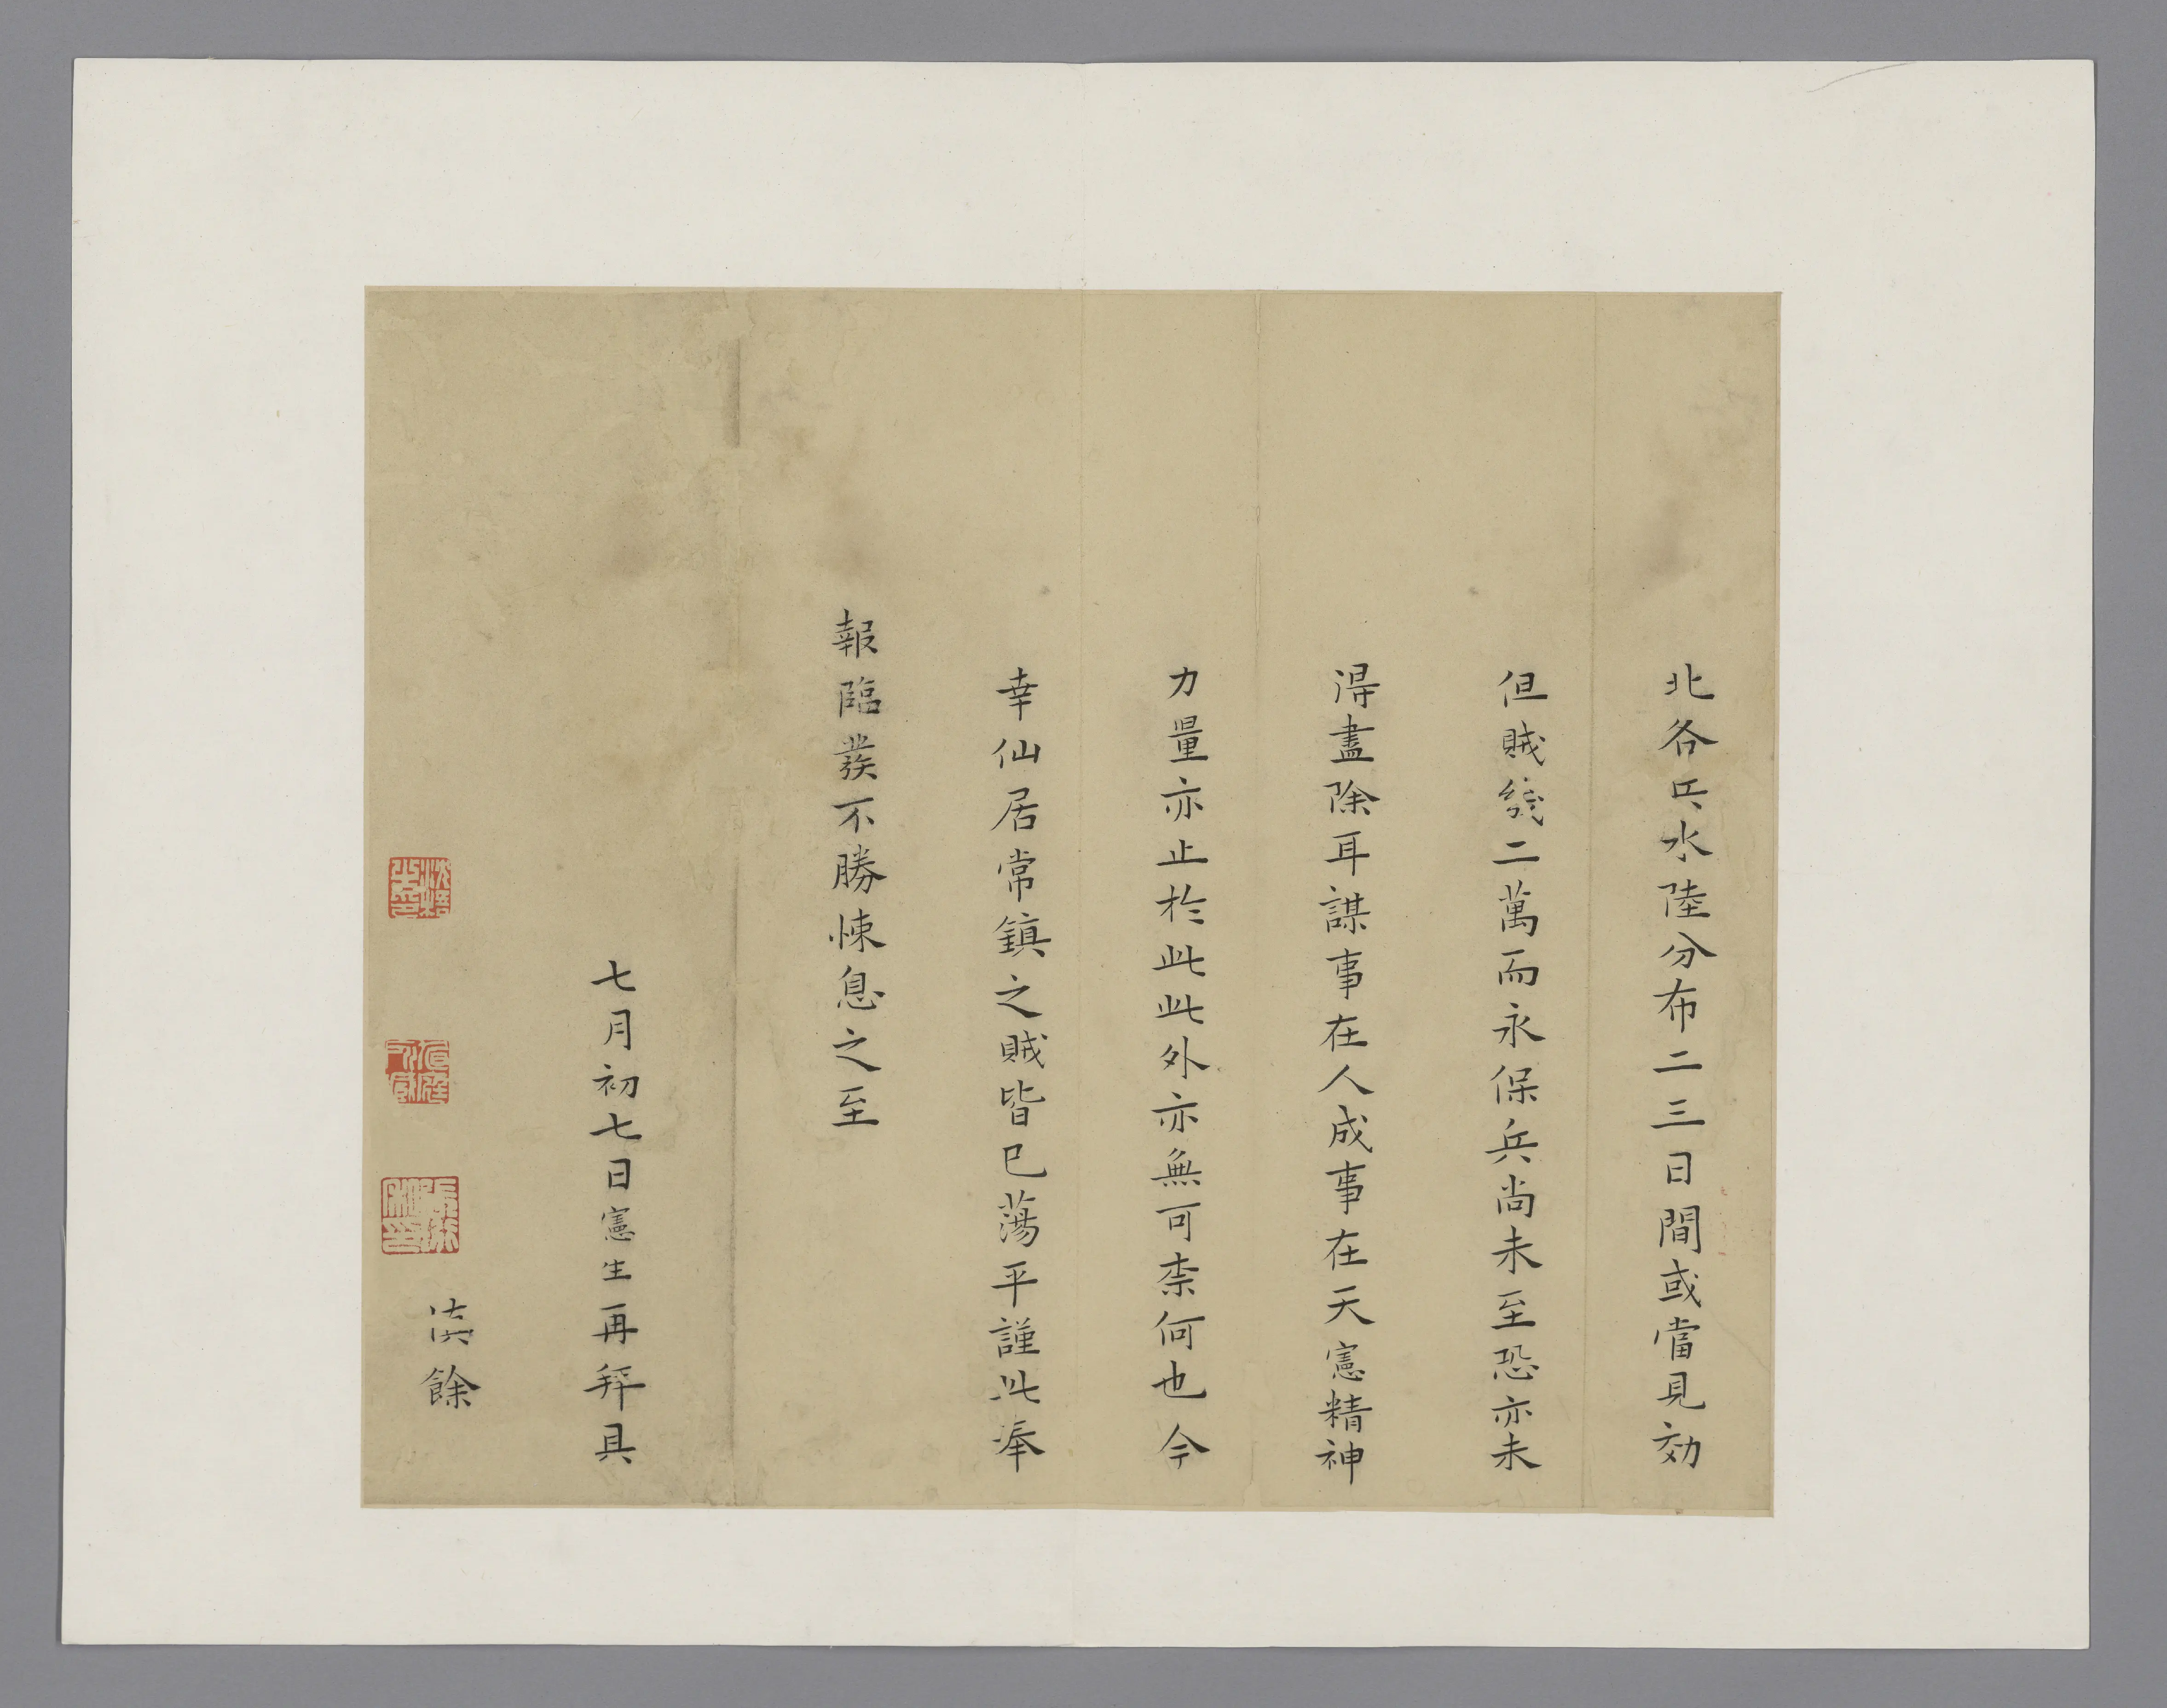 北各兵水陸分布二三日間或當見効
但賊幾二萬而永保兵尚未至恐亦未
得盡除耳謀事在人成事在天憲精神
力量亦止於此此外亦無可柰何也今
幸仙居常鎮之賊皆已蕩平謹此奉
報臨發不勝悚息之至
七月初七日憲生再拜具
餘